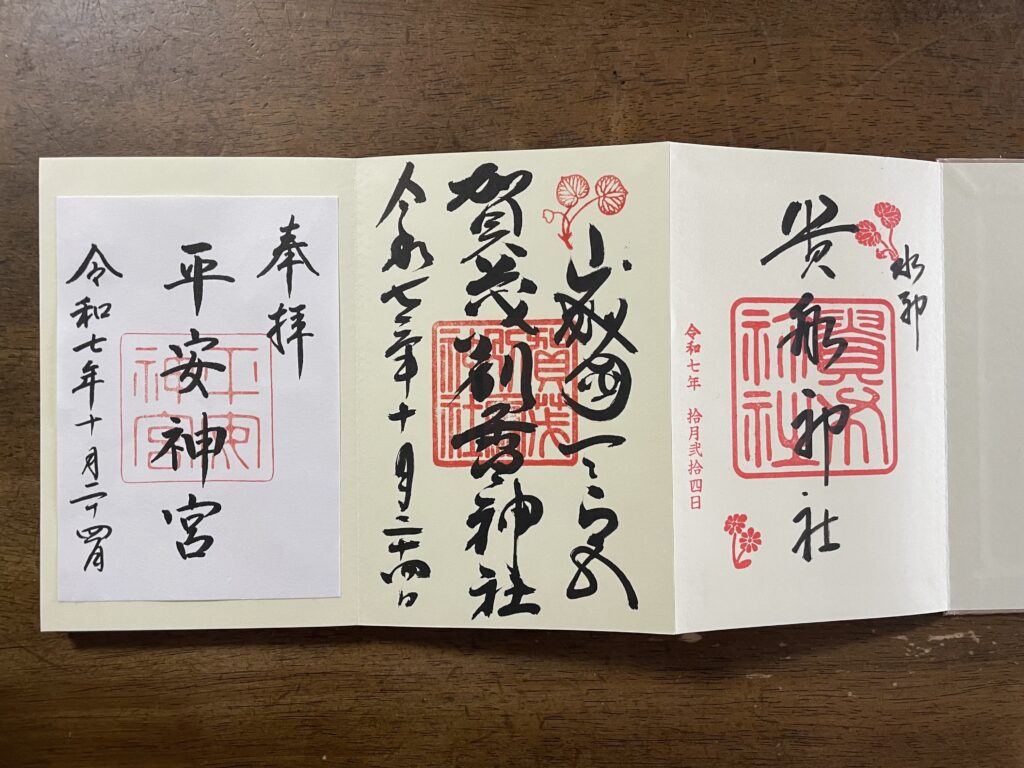 水神
貴船神社
貴船神社
令和七年 拾月弐拾四日
山城國一之宮
賀茂別雷神社
賀茂別雷神社
令和七年十月二十四日
奉拝
平安神宮
平安神宮
令和七年十月二十四日